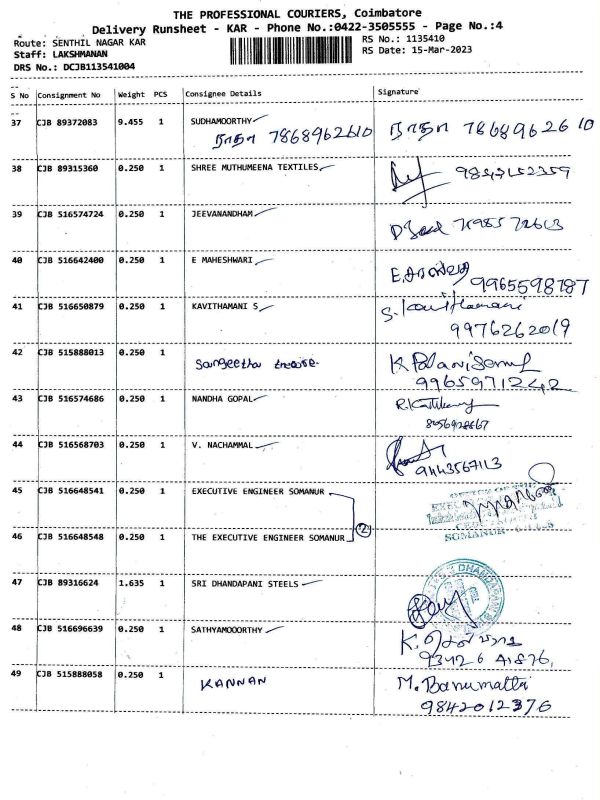 THE PROFESSIONAL COURIERS, Coimbatore
Delivery Runsheet - KAR - Phone No.:0422-3505555 - Page No.:4
Route: SENTHIL NAGAR KAR
RS No.: 1135410
Staff: LAKSHMANAN
RS Date: 15-Mar-2023
DRS No.: DCJB113541004
S No Consignment No Weight PCS Consignee Details Signature
37 CJB 89372083 9.455 1 SUDHAMOORTHY
ராதா 7868962610 ராதா 7868962610
38 CJB 89315360 0.250 1 SHREE MUTHUMEENA TEXTILES
39 CJB 516574724 0.250 1 JEEVANANDHAM
40 CJB 516642400 0.250 1 E MAHESHWARI
9965598787
41 CJB 516650879 0.250 1 KAVITHAMANI S S. Kavithamani
9976262019
42 CJB 515888013 0.250 1 Sangeetha
9965971242
43 CJB 516574686 0.250 1 NANDHA GOPAL
44 CJB 516568703 0.250 1 V. NACHAMMAL
9443567113
45 CJB 516648541 0.250 1 EXECUTIVE ENGINEER SOMANUR
②
46 CJB 516648548 0.250 1 THE EXECUTIVE ENGINEER SOMANUR
SOMANUR
47 CJB 89316624 1.635 1 SRI DHANDAPANI STEELS
48 CJB 516696639 0.250 1 SATHYAMOOORTHY
93426 41876,
49 CJB 515888058 0.250 1 KANNAN M. Banumathi
9842012376